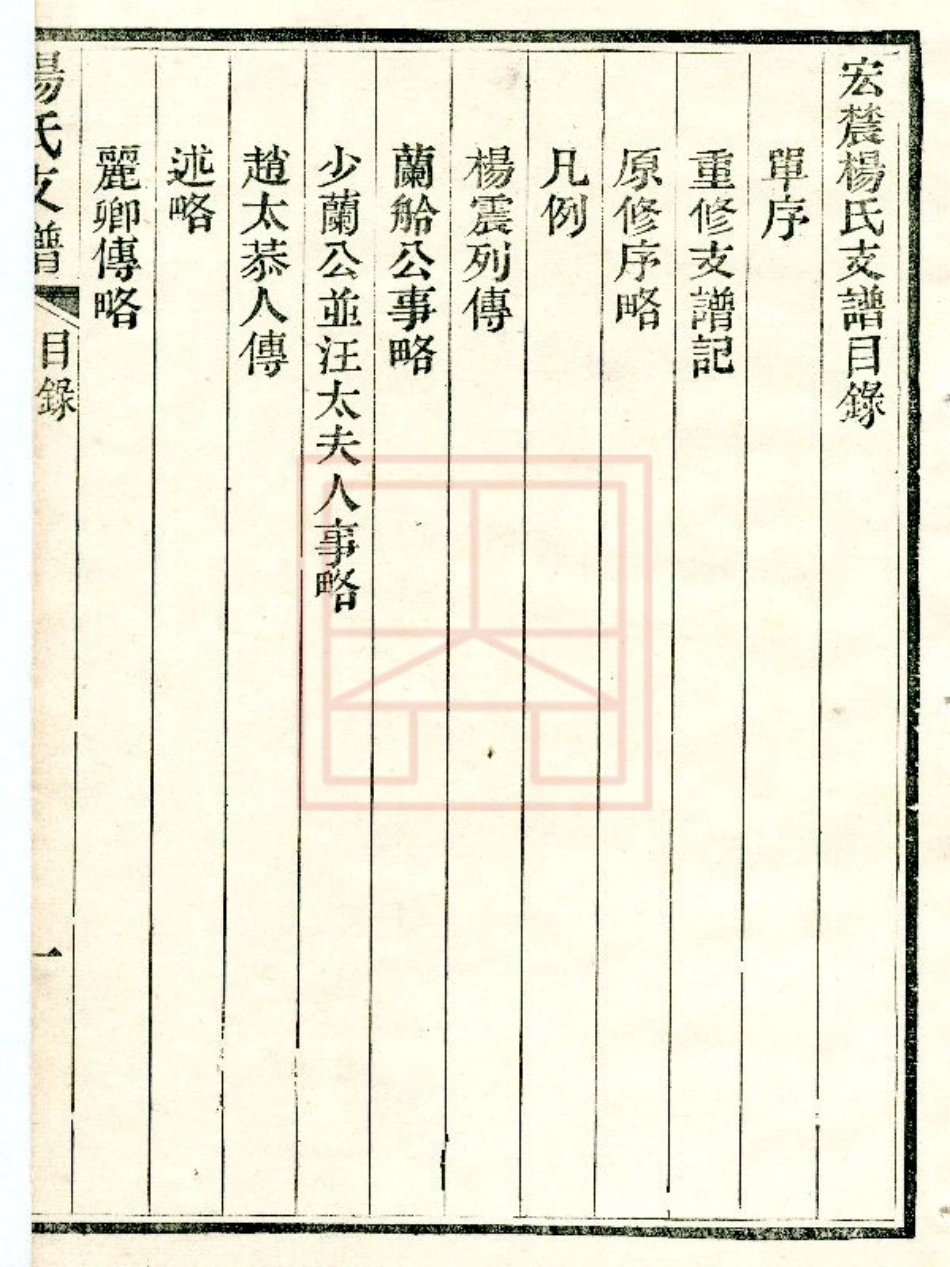 宏農楊氏支譜目錄
單序
重修支譜記
原修序略
凡例
楊震列傳
蘭船公事略
少蘭公並汪太夫人事略
趙太恭人傳
述略
麗卿傳略
楊氏支譜
目錄
一